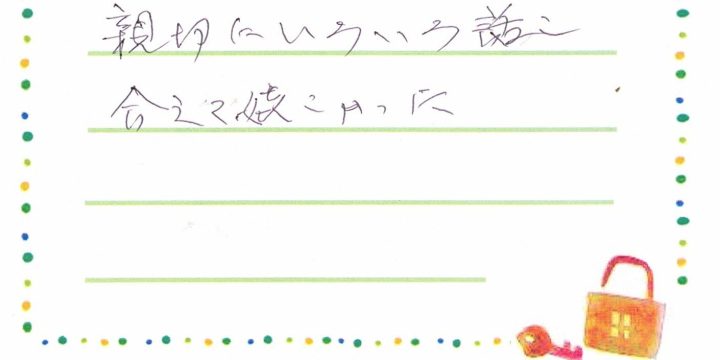 親切にいろいろ話し
合えて嬉しかった